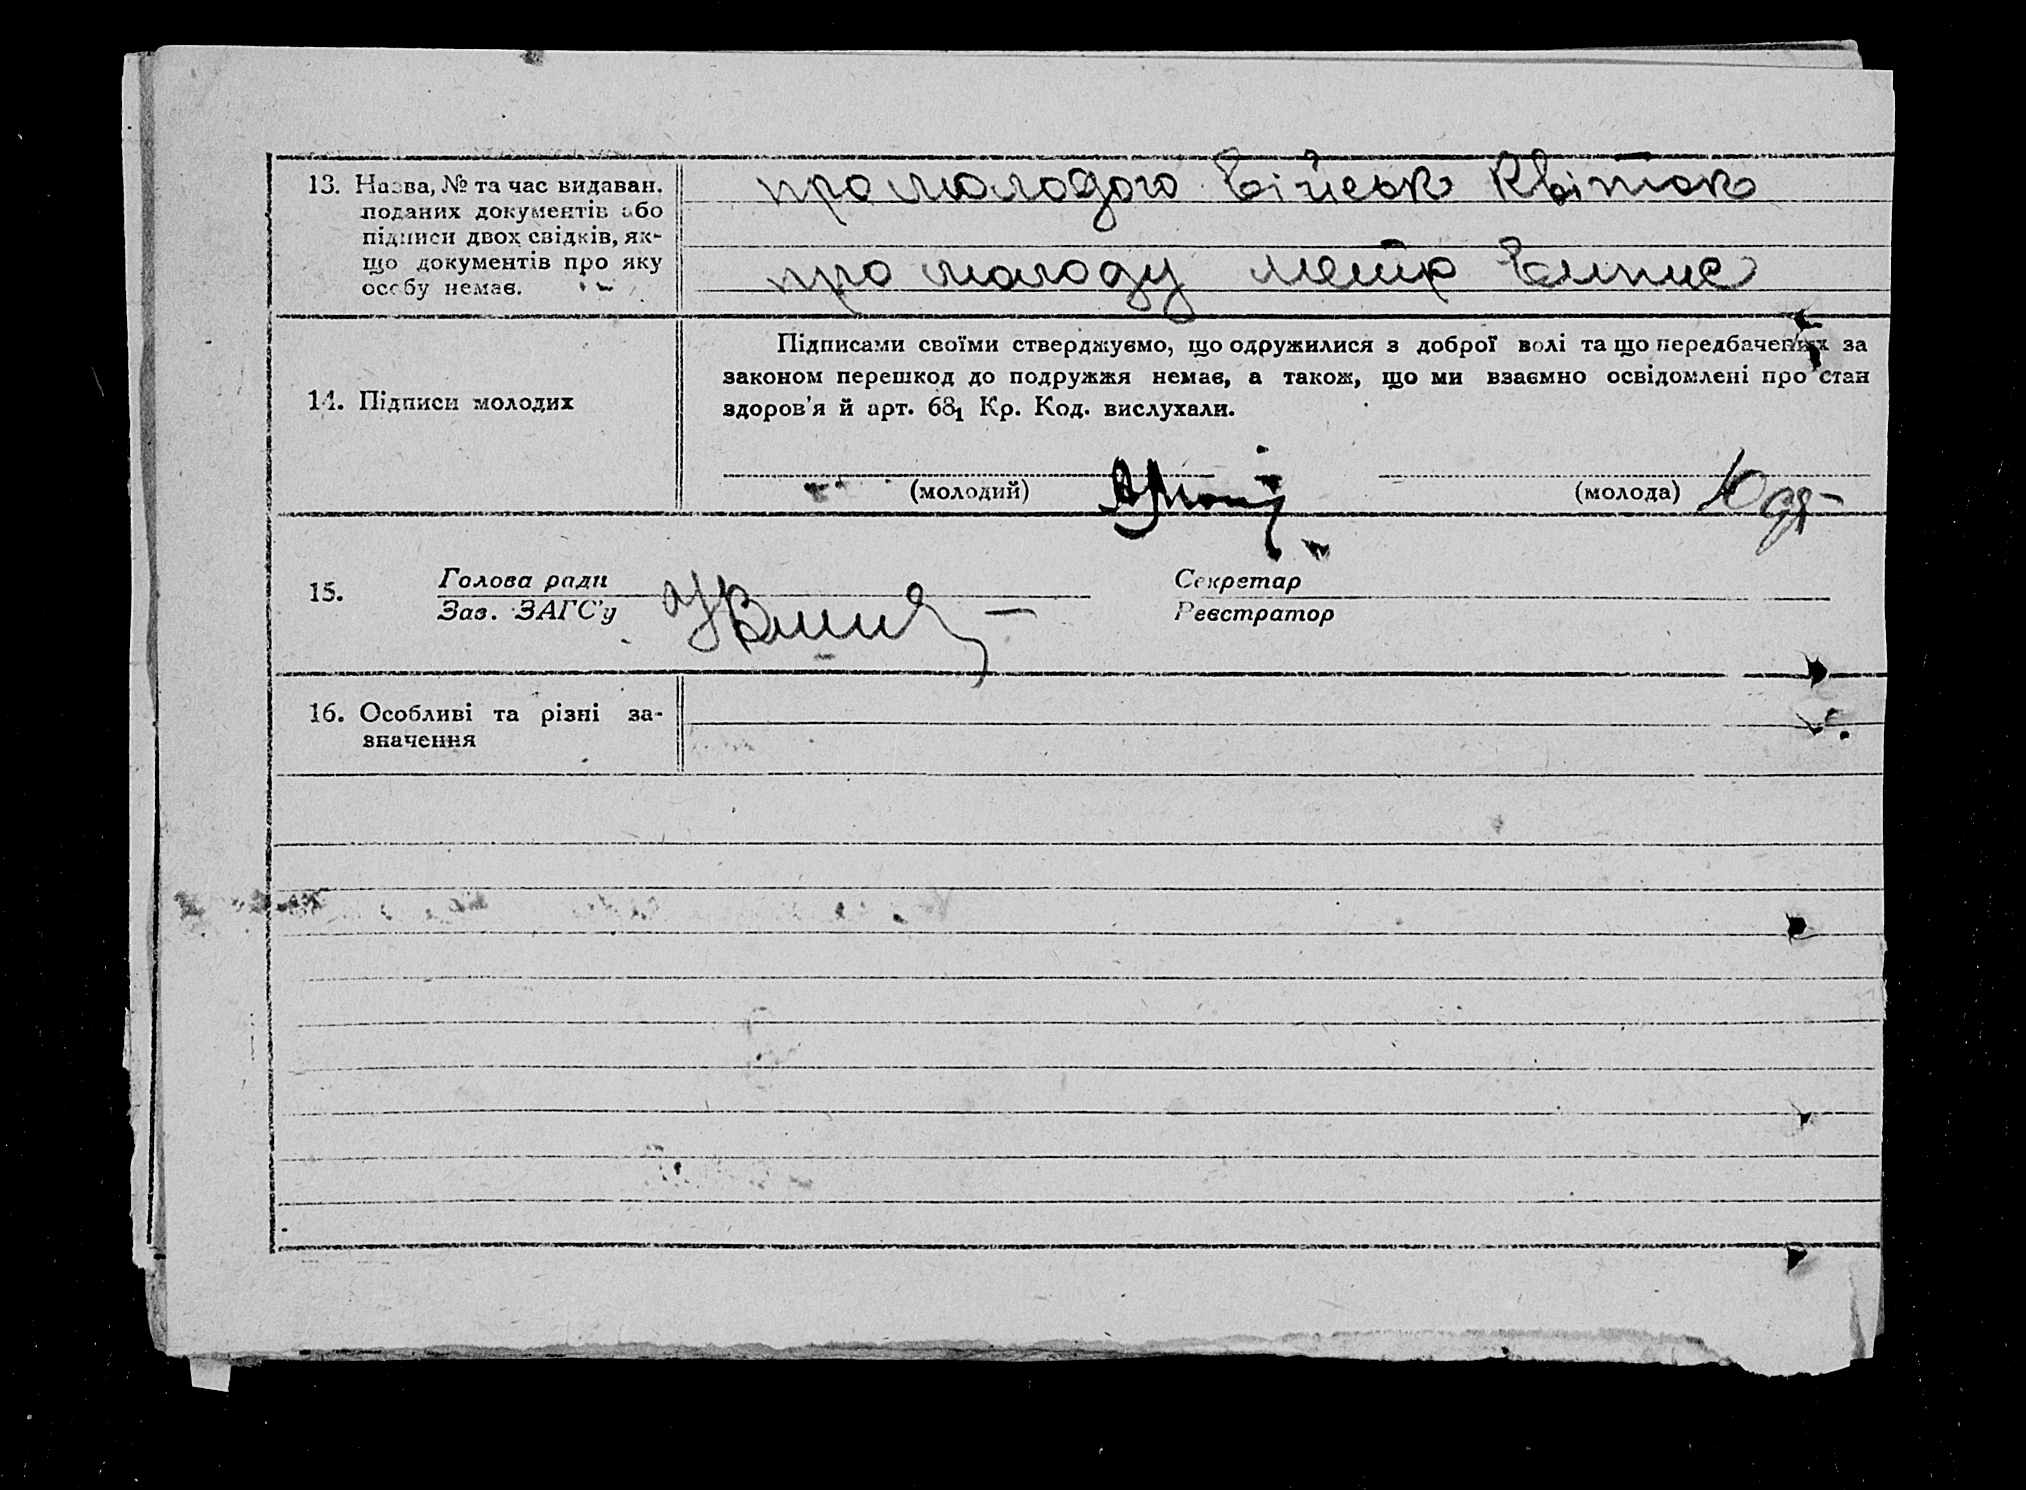 13. Назва, № та час видаван.
поданих документів або
підписи двох свідків, як-
що документів про яку
особу немає.
про молодого військ квіток
про молоду метр випис
14. Підписи молодих
Підписами своїми стверджуємо, що одружилися з доброї волі та що передбачених за
законом перешкод до подружжя немає, а також, що ми взаємно освідомлені про стан
здоров'я й арт. 68₁ Кр. Код. вислухали.
(молодий)
(молода)
15.
Голова ради
Зав. ЗАГС'у
Секретар
Реєстратор
16. Особливі та різні за-
значення